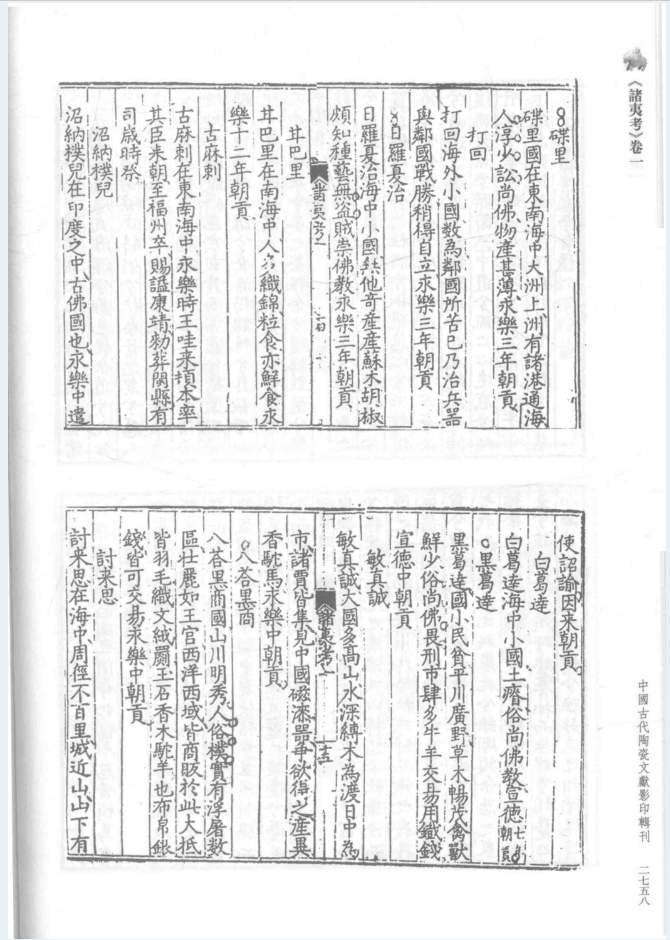 《諸夷考》卷一
碟里
碟里國在東南海中大洲上洲有諸港通海
人淳少訟尚佛物產甚薄永樂三年朝貢
打回
打回海外小國數為鄰國所苦已乃治兵器
與鄰國戰勝稍得自立永樂三年朝貢
日羅夏治
日羅夏治海中小國無他奇產產蘇木胡椒
頗知種藝無盜賊崇佛教永樂三年朝貢
諸夷考
十四
苷巴里
苷巴里在南海中人多織錦粒食亦鮮食永
樂十二年朝貢
古麻剌
古麻剌在東南海中永樂時王哇来頓本率
其臣来朝至福州卒賜諡康靖勑葬閩縣有
司歲時祭
沼納樸兒
沼納樸兒在印度之中古佛國也永樂中遣
使詔諭因来朝貢
白葛達
白葛達海中小國土瘠俗尚佛教宣德七年朝貢
黑葛達
黑葛達國小民貧平川廣野草木暢茂禽獸
鮮少俗尚佛畏刑市肆多牛羊交易用鐵錢
宣德中朝貢
敏真誠
敏真誠大國多高山水深縛木為渡日中為
諸夷考
十五
市諸賈皆集見中國磁漆器爭欲得之產異
香駝馬永樂中朝貢
八荅黑商
八荅黑商國山川明秀人俗樸實有浮屠數
區壮麗如王宮西洋西域皆商販於此大抵
皆羽毛織文絨罽玉石香木駝羊也布帛銀
錢皆可交易永樂中朝貢
討来思
討来思在海中周徑不百里城近山山下有
中國古代陶瓷文獻影印輯刊
二七五八